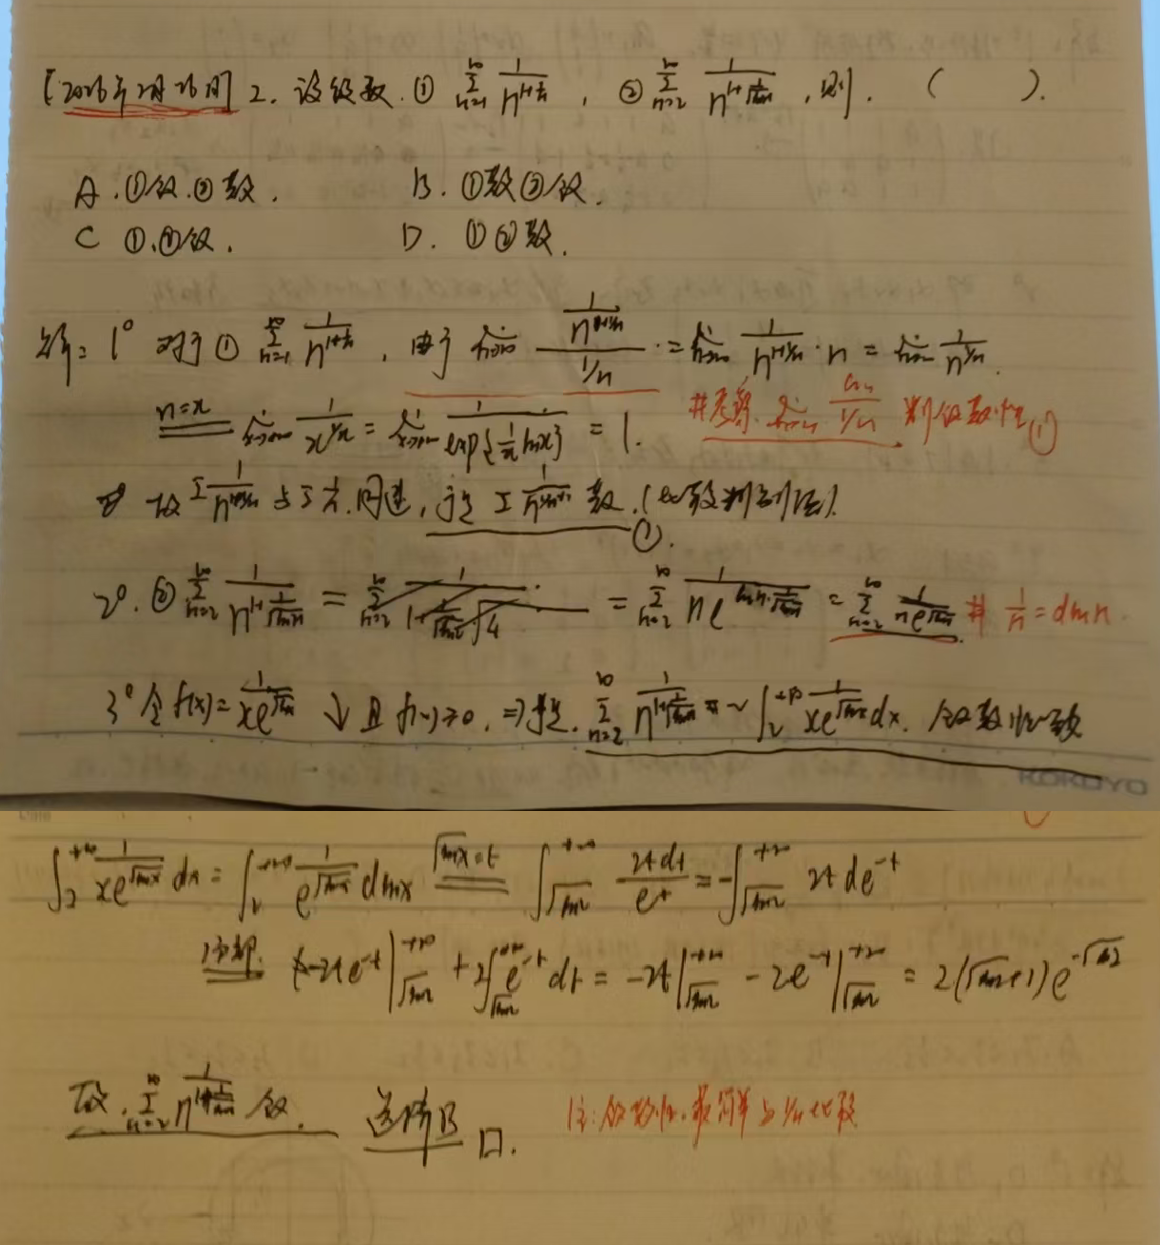 [2026年2月26日] 2. 设级数 ① $\sum_{n=1}^{\infty} \frac{1}{n^{1+\frac{1}{n}}}$, ② $\sum_{n=2}^{\infty} \frac{1}{n^{1+\frac{1}{\sqrt{\ln n}}}}$, 则 ( ).
A. ①敛.②散. B. ①散②敛.
C ①.②敛. D. ①②散.
解: 1° 对于① $\sum_{n=1}^{\infty} \frac{1}{n^{1+\frac{1}{n}}}$, 由于 $\lim_{n\to\infty} \frac{\frac{1}{n^{1+1/n}}}{1/n} = \lim_{n\to\infty} \frac{1}{n^{1+1/n}} \cdot n = \lim_{n\to\infty} \frac{1}{n^{1/n}}$.
n=x $\lim_{x\to\infty} \frac{1}{x^{1/x}} = \lim_{x\to\infty} \frac{1}{\exp\{\frac{1}{x}\ln x\}} = 1$. #考察 $\lim_{n\to\infty} \frac{u_n}{1/n}$ 判敛散性①
故 $\sum \frac{1}{n^{1+1/n}}$ 与 $\sum \frac{1}{n}$ 同进, 于是 $\sum \frac{1}{n^{1/n+1}}$ 散. (比较判别法).
①.
2°. ② $\sum_{n=2}^{\infty} \frac{1}{n^{1+\frac{1}{\sqrt{\ln n}}}} = \sum_{n=2}^{\infty} \frac{1}{n e^{\ln n \cdot \frac{1}{\sqrt{\ln n}}}} = \sum_{n=2}^{\infty} \frac{1}{n e^{\sqrt{\ln n}}}$. # $\frac{1}{n} = d\ln n$.
3° 令 $f(x) = \frac{1}{x e^{\sqrt{\ln x}}}$ ↓ 且 $f(x) \geq 0$. ⇒ 于是. $\sum_{n=2}^{\infty} \frac{1}{n^{1+\frac{1}{\sqrt{\ln n}}}} \sim \int_2^{+\infty} \frac{1}{x e^{\sqrt{\ln x}}} dx$. 敛散性一致
KOKUYO
$\int_2^{+\infty} \frac{1}{x e^{\sqrt{\ln x}}} dx = \int_2^{+\infty} \frac{1}{e^{\sqrt{\ln x}}} d\ln x$ $\sqrt{\ln x} = t$ $\int_{\sqrt{\ln 2}}^{+\infty} \frac{2t dt}{e^t} = -\int_{\sqrt{\ln 2}}^{+\infty} 2t de^{-t}$
分部. $-2te^{-t} |_{\sqrt{\ln 2}}^{+\infty} + 2\int_{\sqrt{\ln 2}}^{+\infty} e^{-t} dt = -2t |_{\sqrt{\ln 2}}^{+\infty} - 2e^{-t} |_{\sqrt{\ln 2}}^{+\infty} = 2(\sqrt{\ln 2}+1) e^{-\sqrt{\ln 2}}$
故, $\sum_{n=2}^{\infty} \frac{1}{n^{1+\frac{1}{\sqrt{\ln n}}}}$ 敛. 选择B □. 注: 敛散性.最简单与 1/n 比较